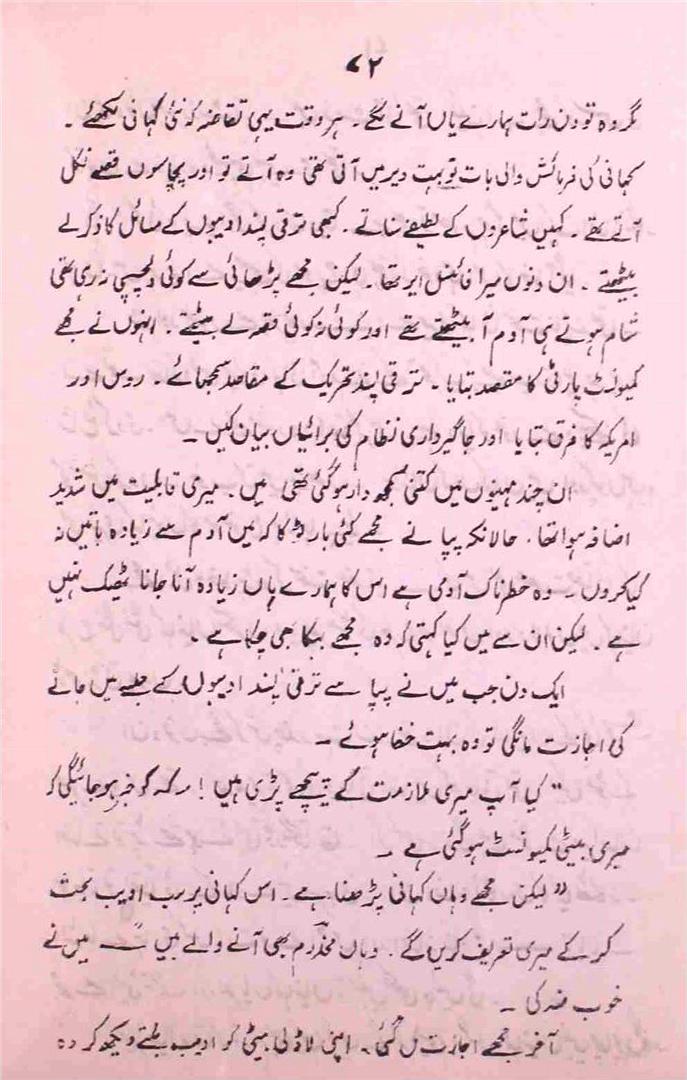 ۷۲
گر وہ تو دن رات ہمارے یاں آنے لگے ۔ ہر وقت یہی تقاضہ کہ نئی کہانی لکھئے ۔
کہانی کی فرمائش والی بات تو بہت دیر میں آتی تھی وہ آتے تو اور پچاسوں قصے نکل
آتے تھے ۔ کہیں شاعروں کے لطیفے سناتے ۔ کبھی ترقی پسند ادیبوں کے مسائل کا ذکر لے
بیٹھتے ۔ ان دنوں میرا فائنل ایر تھا ۔ لیکن مجھے پڑھائی سے کوئی دلچسپی نہ رہی تھی
شام ہوتے ہی آدم آ بیٹھتے تھے اور کوئی نہ کوئی قصہ لے بیٹھتے ۔ انہوں نے مجھے
کمیونسٹ پارٹی کا مقصد بتایا ۔ ترقی پسند تحریک کے مقاصد سمجھائے ۔ روس اور
امریکہ کا فرق بتایا اور جاگیرداری نظام کی برائیاں بیان کیں ۔
ان چند مہینوں میں کتنی سمجھ دار ہو گئی تھی میں ۔ میری قابلیت میں شدید
اضافہ ہوا تھا ۔ حالانکہ پپا نے مجھے کئی بار ٹوکا کہ میں آدم سے زیادہ باتیں نہ
کیا کروں ۔ وہ خطرناک آدمی ہے اس کا ہمارے ہاں زیادہ آنا جانا ٹھیک نہیں
ہے ۔ لیکن ان سے میں کیا کہتی کہ وہ مجھے بہکا بھی چکا ہے ۔
ایک دن جب میں نے پپا سے ترقی پسند ادیبوں کے جلسے میں جانے
کی اجازت مانگی تو وہ بہت خفا ہوئے ۔
" کیا آپ میری ملازمت کے پیچھے پڑی ہیں ! سرکار کو خبر ہو جائیگی کہ
میری بیٹی کمیونسٹ ہو گئی ہے ۔
" لیکن مجھے وہاں کہانی پڑھنا ہے ۔ اس کہانی پر سب ادیب بحث
کر کے میری تعریف کریں گے ۔ وہاں مخدوم بھی آنے والے ہیں " ــــ میں نے
خوب ضد کی ۔
آخر مجھے اجازت مل گئی ۔ اپنی لاڈلی بیٹی کو ادیب بنتے دیکھ کر وہ